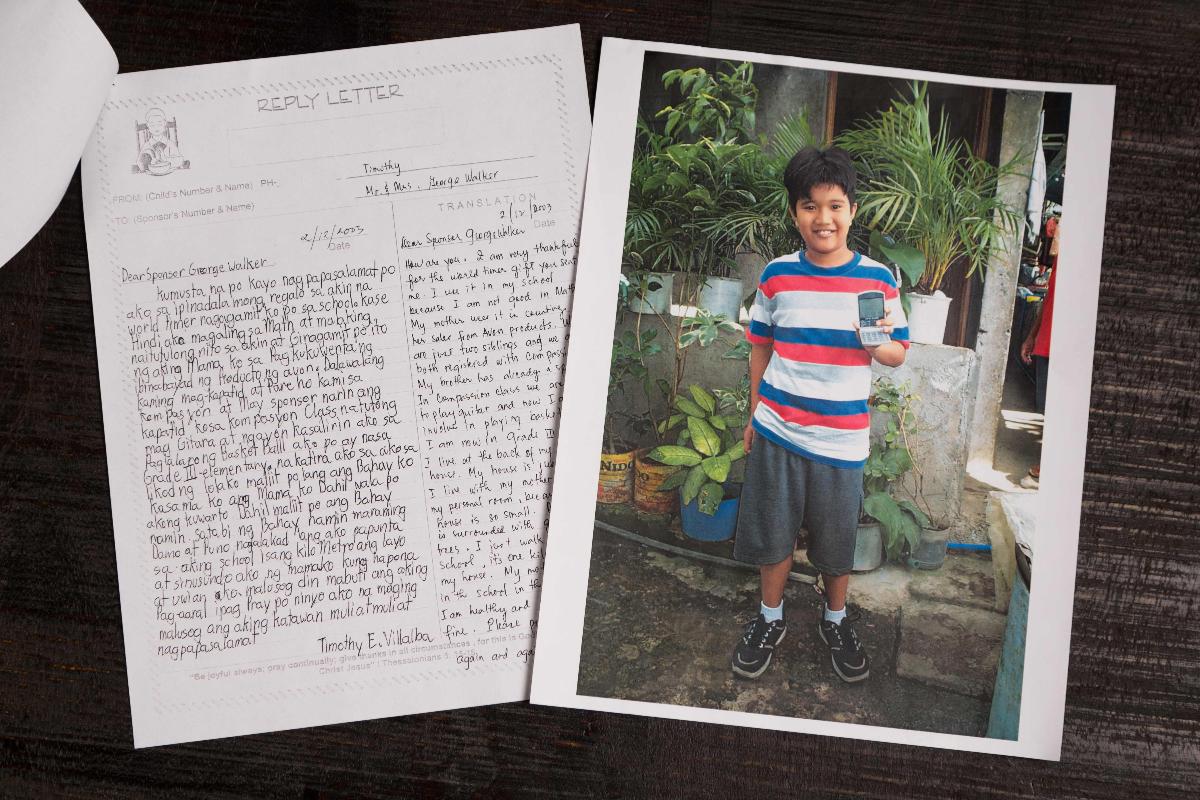 REPLY LETTER
FROM: (Child's Number & Name) PH-
Timothy
TO: (Sponsor's Number & Name)
Mr. & Mrs. George Walker
2/12/2003
Date
Dear Sponser George Walker
kumusta na po kayo nag papasalamat po
ako sa ipinadala mong regalo sa akin na
world timer nagagamit ko po sa school kase
Hindi ako magaling sa Math at mabiking
naitutulong nito sa akin at Ginagamit pe ito
ng aking Mama, ko sa Pag kukuwenta ng
binabayad ng Producto ng avon. Dalawalang
kaming mag-kapatid at Pare ho kami sa
kompasyon at May sponser narin ang
kapatid kosa komposyon Class natutong
mag Gitara at ngayon kasalinin ako sa
Paglalarong Basket Ball ako po ay nasa
Grade III-elementary. nakatira ako sa
likod ng lolako maliit po lang ang Bahay ko
kasama ko ang Mama ko Dahil wala po
akong kuwarto Dahil maliit pe ang Bahay
namin. sa tabi ng Bahay namin maraming
Damo at Puno naglalakad lang ako papunta
sa aking school isang kilo Metro ang layo
at sinusundo ako ng mamako kung hapona
at uwian ako. malusog din mabuti ang aking
Pag-aaral ipag Pray po ninyo ako na maging
malusog ang aking katawan muli at muli at
nagpapasalamat
Timothy E. Villalba
TRANSLATION
2/12/2003
Date
Dear Sponsor George Walker
How are you. I am very thankful
for the world timer gift you sent
me. I use it in my school
because I am not good in Math
My mother use it in counting
her sales from Avon products.
are just two siblings and we
both registered with Compass
My brother has already a sp
In Compassion class we are
to play guitar and now I
involve in playing bask
I am now in Grade III
I live at the back of my
house. My house is
I live with my mother
my personal room, bec
house is so small.
is surrounded with
trees. I just walk
school, it's one kil
my house. My mo
in the school in th
I am healthy and
fine. Please
again and aga
"Be joyful always; pray continually; give thanks in all circumstances, for this is God
Christ Jesus" I Thessalonians
NIDO